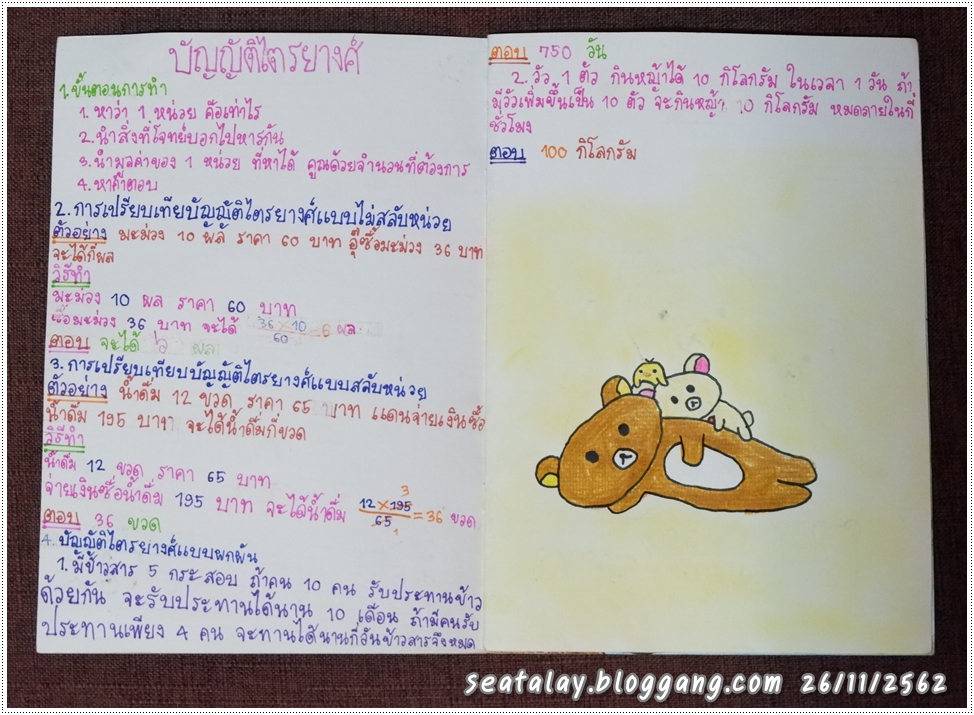 บัญญัติไตรยางศ์
1.ขั้นตอนการทำ
1. หาว่า 1 หน่วย คือเท่าไร
2. นำสิ่งที่โจทย์บอกไปหารกัน
3. นำมูลค่าของ 1 หน่วย ที่หาได้ คูณด้วยจำนวนที่ต้องการ
4. หาคำตอบ
2. การเปรียบเทียบบัญญัติไตรยางศ์แบบไม่สลับหน่วย
ตัวอย่าง มะม่วง 10 ผล ราคา 60 บาท อุ๊ซื้อมะม่วง 36 บาท
จะได้กี่ผล
วิธีทำ
มะม่วง 10 ผล ราคา 60 บาท
ซื้อมะม่วง 36 บาท จะได้ 36 × 10 / 60 = 6 ผล
ตอบ จะได้ 6 ผล
3. การเปรียบเทียบบัญญัติไตรยางศ์แบบสลับหน่วย
ตัวอย่าง น้ำดื่ม 12 ขวด ราคา 65 บาท แดนจ่ายเงินซื้อ
น้ำดื่ม 195 บาท จะได้น้ำดื่มกี่ขวด
วิธีทำ
น้ำดื่ม 12 ขวด ราคา 65 บาท
จ่ายเงินซื้อน้ำดื่ม 195 บาท จะได้น้ำดื่ม 12 × 195 / 65 = 36 ขวด
3
1
ตอบ 36 ขวด
4. บัญญัติไตรยางศ์แบบผกผัน
1. มีข้าวสาร 5 กระสอบ ถ้าคน 10 คน รับประทานข้าว
ด้วยกัน จะรับประทานได้นาน 10 เดือน ถ้ามีคนรับ
ประทานเพียง 4 คน จะทานได้นานกี่วันข้าวสารจึงหมด
ตอบ 750 วัน
2. วัว 1 ตัว กินหญ้าได้ 10 กิโลกรัม ในเวลา 1 วัน ถ้า
มีวัวเพิ่มขึ้นเป็น 10 ตัว จะกินหญ้า 10 กิโลกรัม หมดภายในกี่
ชั่วโมง
ตอบ 100 กิโลกรัม
seatalay.bloggang.com 26/11/2562